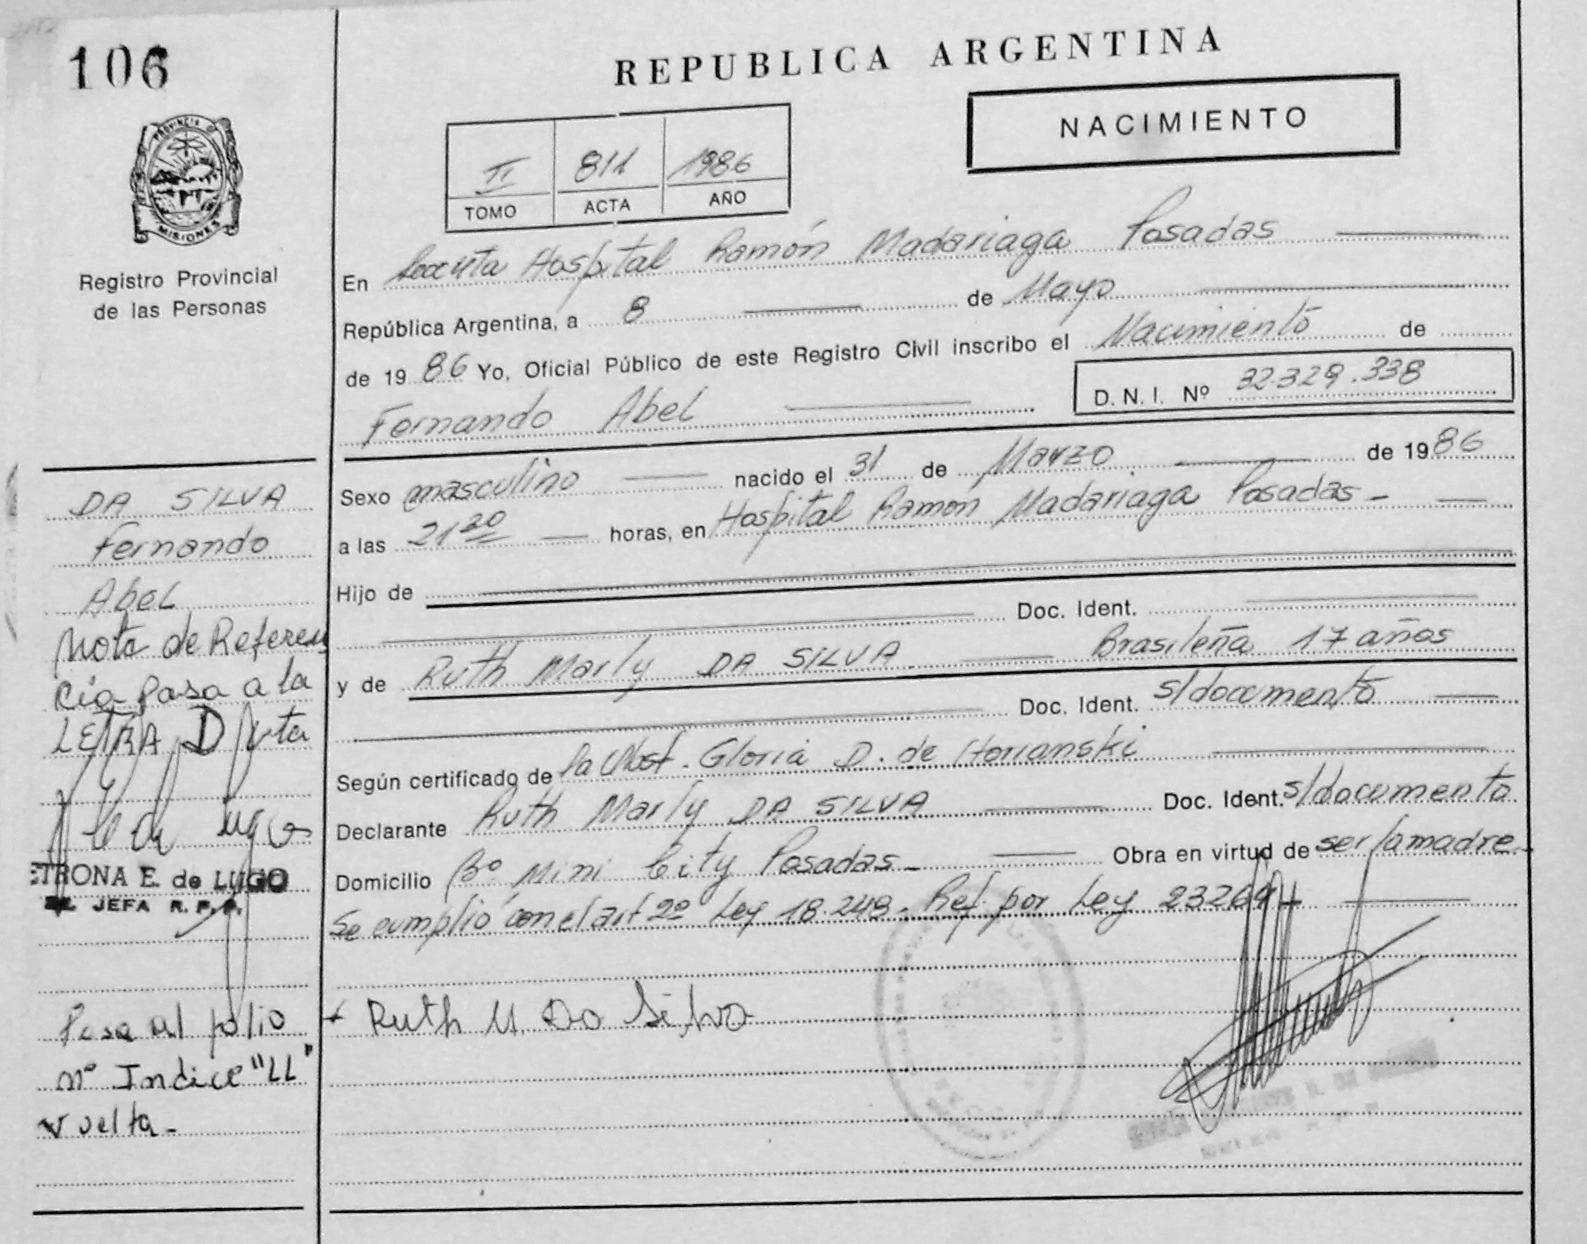 106
REPUBLICA ARGENTINA
NACIMIENTO
II 811 1986
TOMO ACTA AÑO
PROVINCIA DE
MISIONES
Registro Provincial
de las Personas
En Hospital Ramón Madariaga Posadas
República Argentina, a 8 de Mayo
de 1986 Yo, Oficial Público de este Registro Civil inscribo el Nacimiento de
Fernando Abel D. N. I. Nº 32.329.338
Sexo masculino nacido el 31 de Marzo de 1986
a las 21 20 horas, en Hospital Ramón Madariaga Posadas -
Hijo de
Doc. Ident.
y de Ruth Marly DA SILVA Brasileña 17 años
Doc. Ident. s/documento
Según certificado de la Obst. Gloria D. de
Declarante Ruth Marly DA SILVA Doc. Ident. s/documento
Domicilio Bº Mini City Posadas - Obra en virtud de ser la madre
Se cumplió con el art 2º Ley 18.248. Ref. por Ley 23264
Ruth M. Da Silva
DA SILVA
Fernando
Abel
Nota de Referen
cia pasa a la
LETRA D
ETRONA E. de LUGO
JEFA R. P. P.
Pasa al folio
Nº Indice "LL"
vuelta -